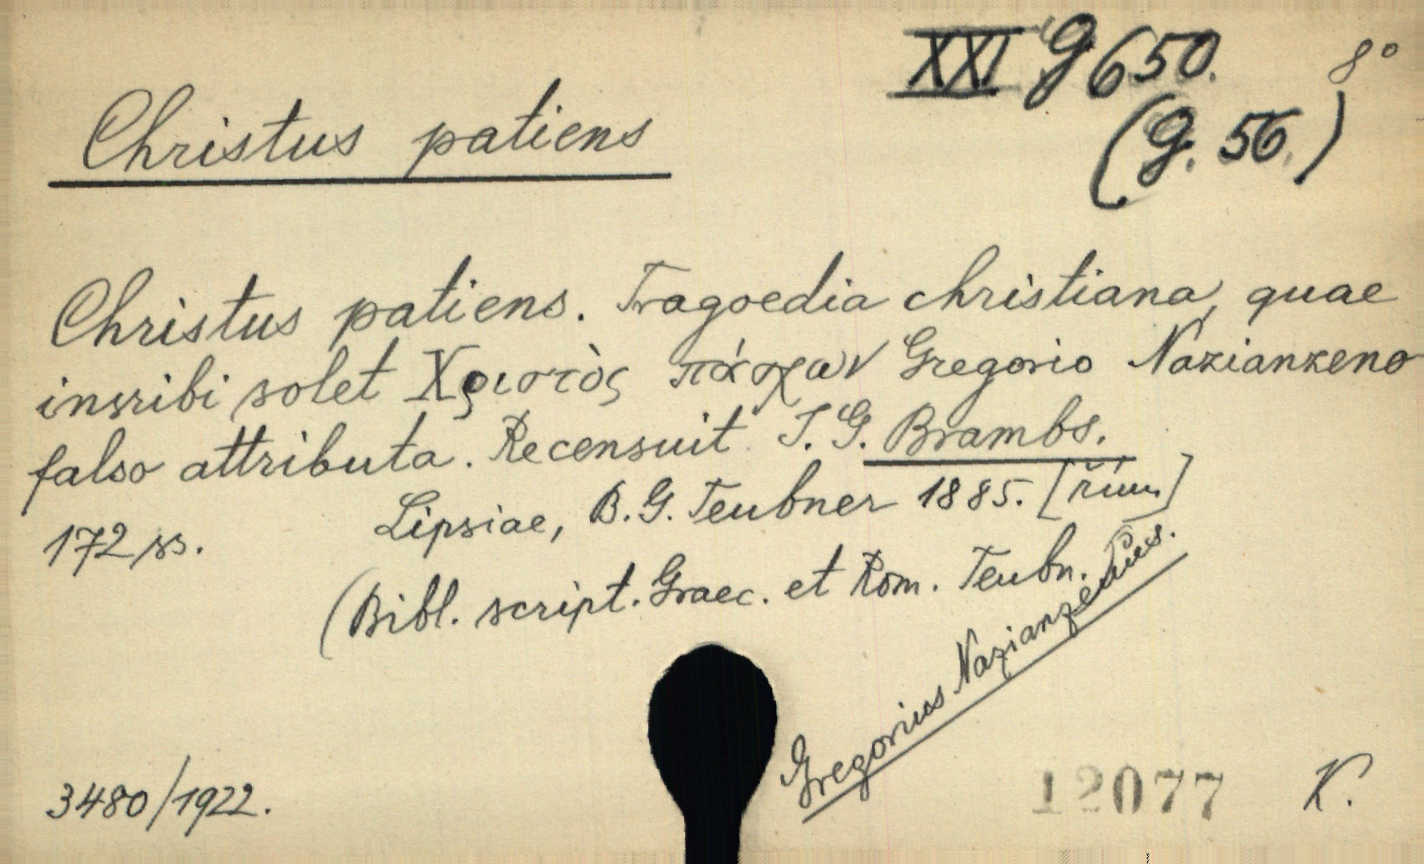 XXI G 650. 8°
(G. 56.)
Christus patiens
Christus patiens. Tragoedia christiana, quae
insribi solet Χριστὸς πάσχων Gregorio Nazianzeno
falso attributa. Recensuit I. G. Brambs.
172 ss. Lipsiae, B. G. Teubner 1885.
(Bibl. script. Graec. et Rom. Teubn.
Gregorius Nazianzenus.
3480/1922.
12077 K.